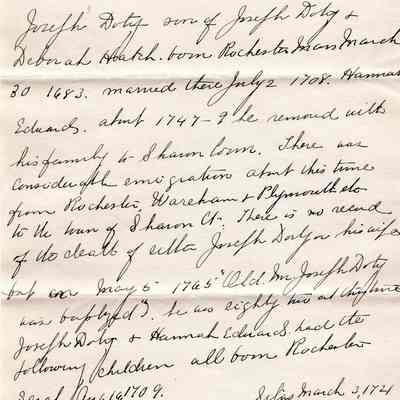 Joseph Doty son of Joseph Doty &
Deborah Hatch. born Rochester Mass March
30 1683. married there July 2 1708. Hannah
Edwards. about 1747-9 he removed with
his family to Sharon Conn. There was
considerable emigration about this time
from Rochester, Wareham & Plymouth etc
to the town of Sharon Ct. There is no record
of the death of either Joseph Doty or his wife
but on May 5 1765 "Old Mr Joseph Doty
was baptized". he was eighty two at this time
Joseph Doty & Hannah Edwards had the
following children all born Rochester
1709. March 3, 1721